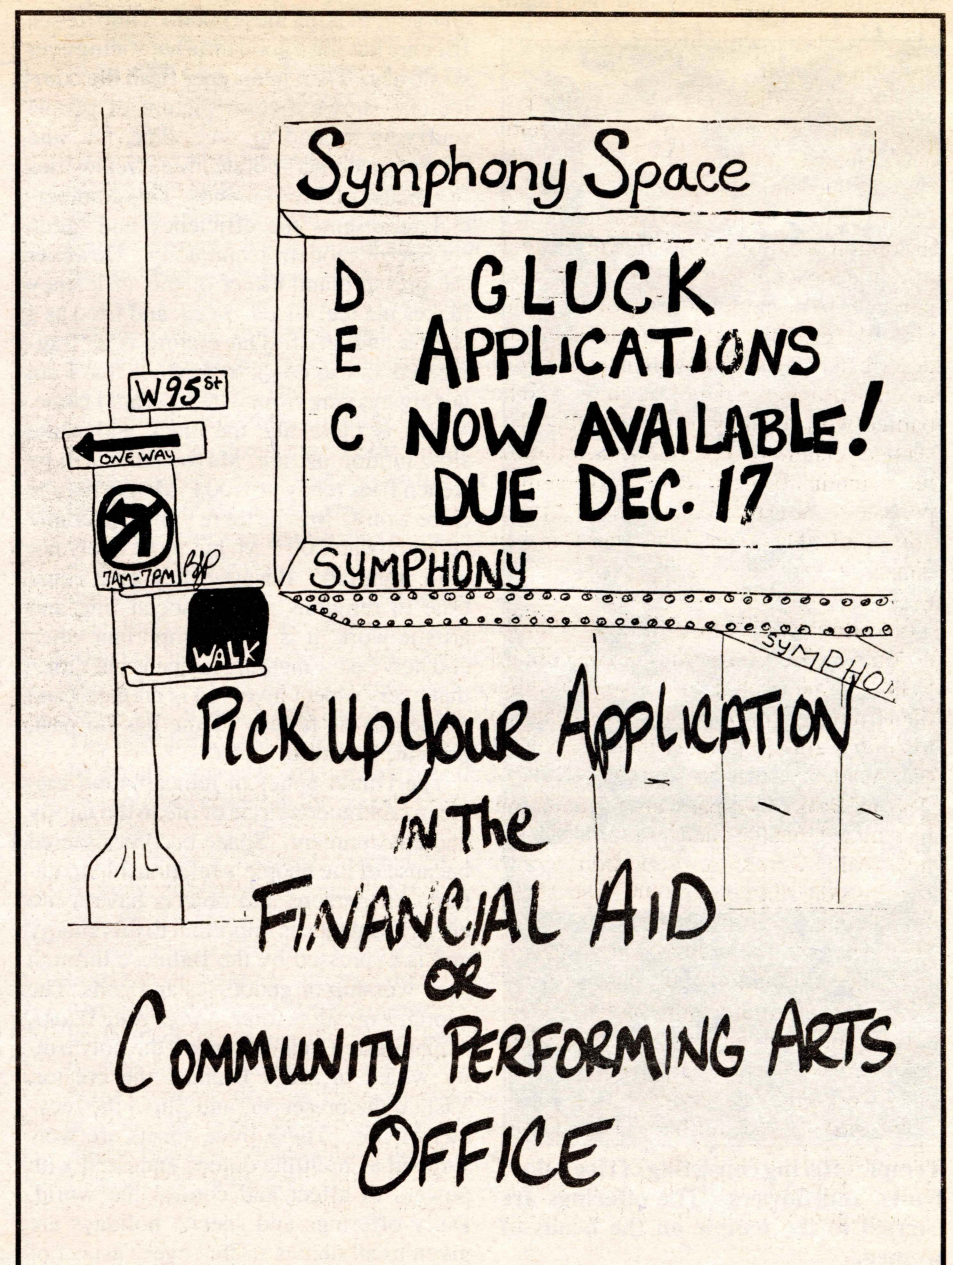 Symphony Space
D GLUCK
E APPLICATIONS
C NOW AVAILABLE!
DUE DEC. 17
SYMPHONY
SYMPHO
W 95 St
ONE WAY
7AM-7PM
WALK
Pick Up Your Application
in The
Financial Aid
or
Community Performing Arts
Office